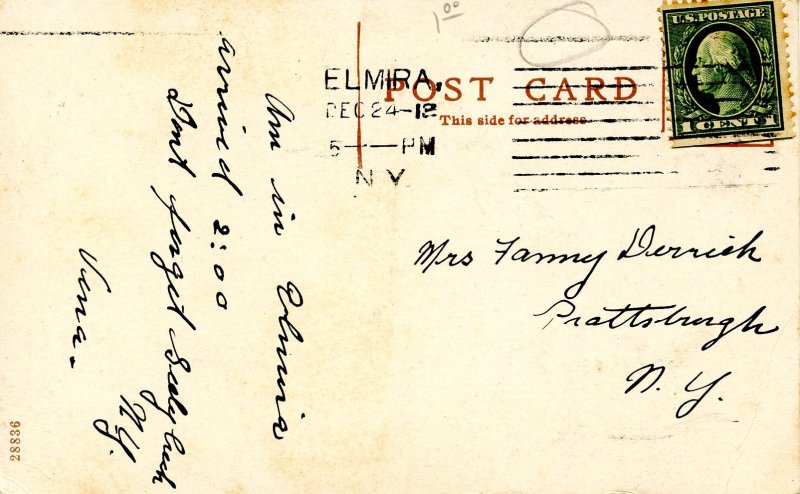 1.00
U.S. POSTAGE
1 CENT 1
ELMIRA,
DEC 24-12
5——PM
N Y
POST CARD
This side for address
Am in Elmira
arrived 2:00
Dont forget Seely Creek
N.Y.
Vena.
Mrs Fanny Derrick
Prattsburgh
N. Y.
28836